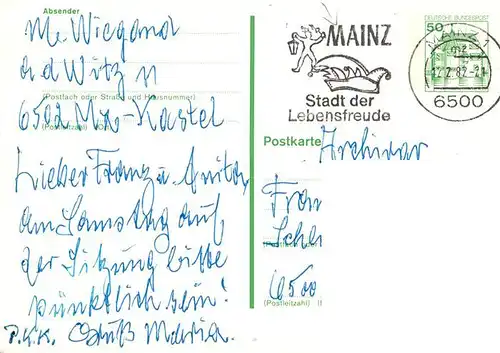 Absender
M. Wiegand
a d Witz 11
(Postfach oder Straße und Hausnummer)
6502 Mz-Kastel
(Postleitzahl)
Lieber Franz u. Anita,
am Samstag auf
der Sitzung bitte
pünktlich sein!
P.K.K. Gruß Maria.
MAINZ
Stadt der
Lebensfreude
DEUTSCHE BUNDESPOST
50
MAINZ 1
mz
12.2.82-21
6500
Postkarte
Archivar
Fran
Schl
6500
(Postleitzahl)